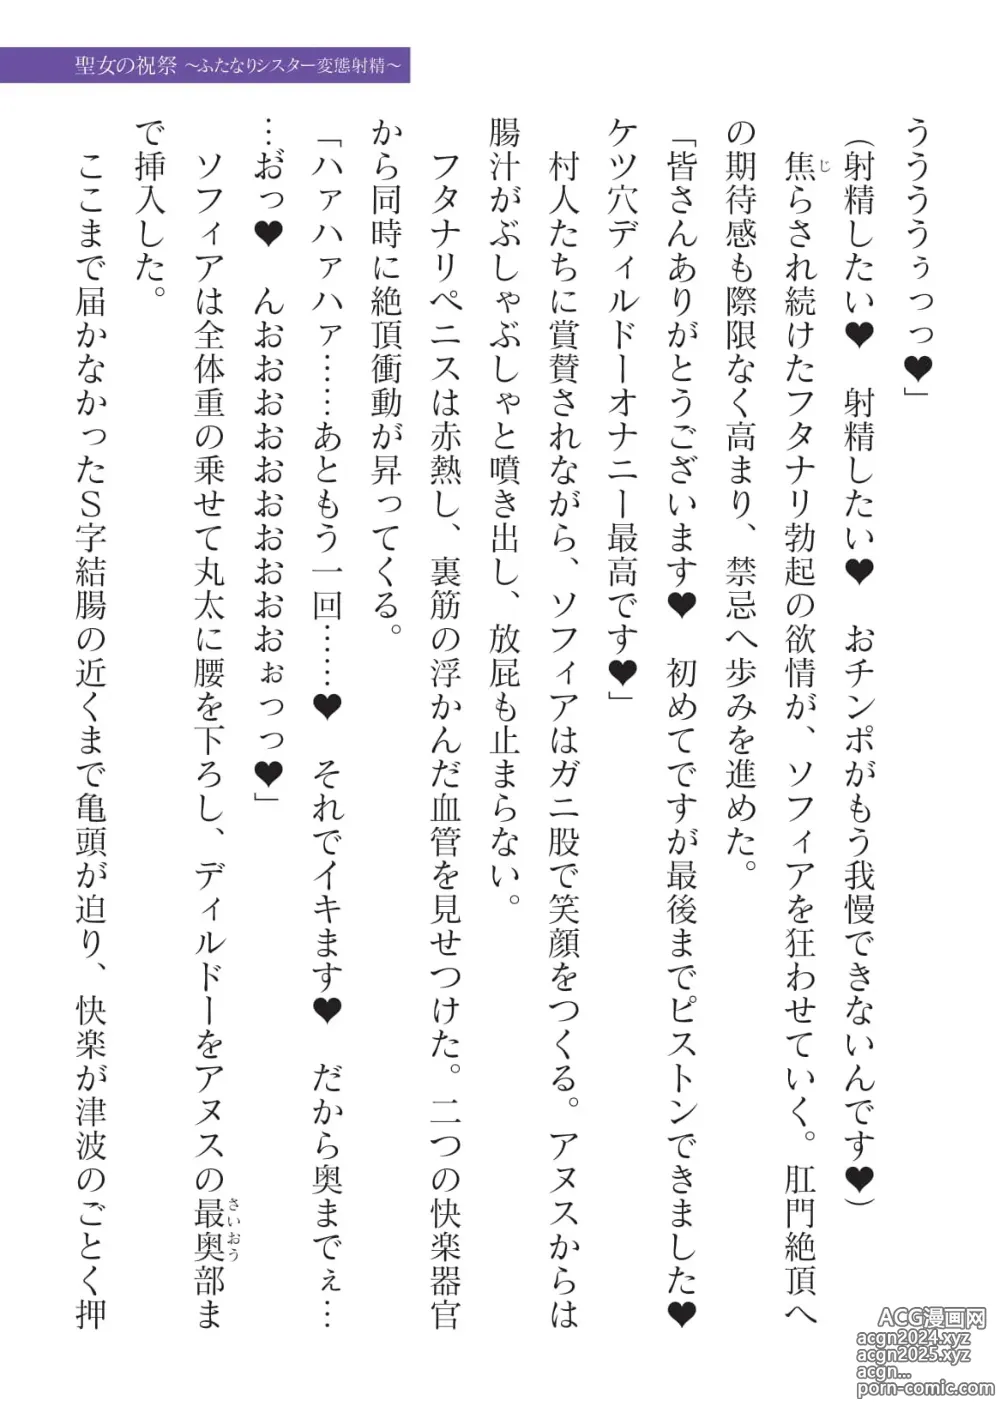 聖女の祝祭 ～ふたなりシスター変態射精～
うううぅっっ♥」
（射精したい♥　射精したい♥　おチンポがもう我慢できないんです♥）
焦らされ続けたフタナリ勃起の欲情が、ソフィアを狂わせていく。肛門絶頂へ
じ
の期待感も際限なく高まり、禁忌へ歩みを進めた。
「皆さんありがとうございます♥　初めてですが最後までピストンできました♥
ケツ穴ディルドーオナニー最高です♥」
村人たちに賞賛されながら、ソフィアはガニ股で笑顔をつくる。アヌスからは
腸汁がぶしゃぶしゃと噴き出し、放屁も止まらない。
フタナリペニスは赤熱し、裏筋の浮かんだ血管を見せつけた。二つの快楽器官
から同時に絶頂衝動が昇ってくる。
「ハァハァハァ……あともう一回……♥　それでイキます♥　だから奥までぇ…
…お゛っ♥　んおおおおおおおおおぉっっ♥」
ソフィアは全体重の乗せて丸太に腰を下ろし、ディルドーをアヌスの最奥部ま
さいおう
で挿入した。
ここまで届かなかったＳ字結腸の近くまで亀頭が迫り、快楽が津波のごとく押
ACG漫画网
acgn2024.xyz
acgn2025.xyz
acgn...
porn-comic.com